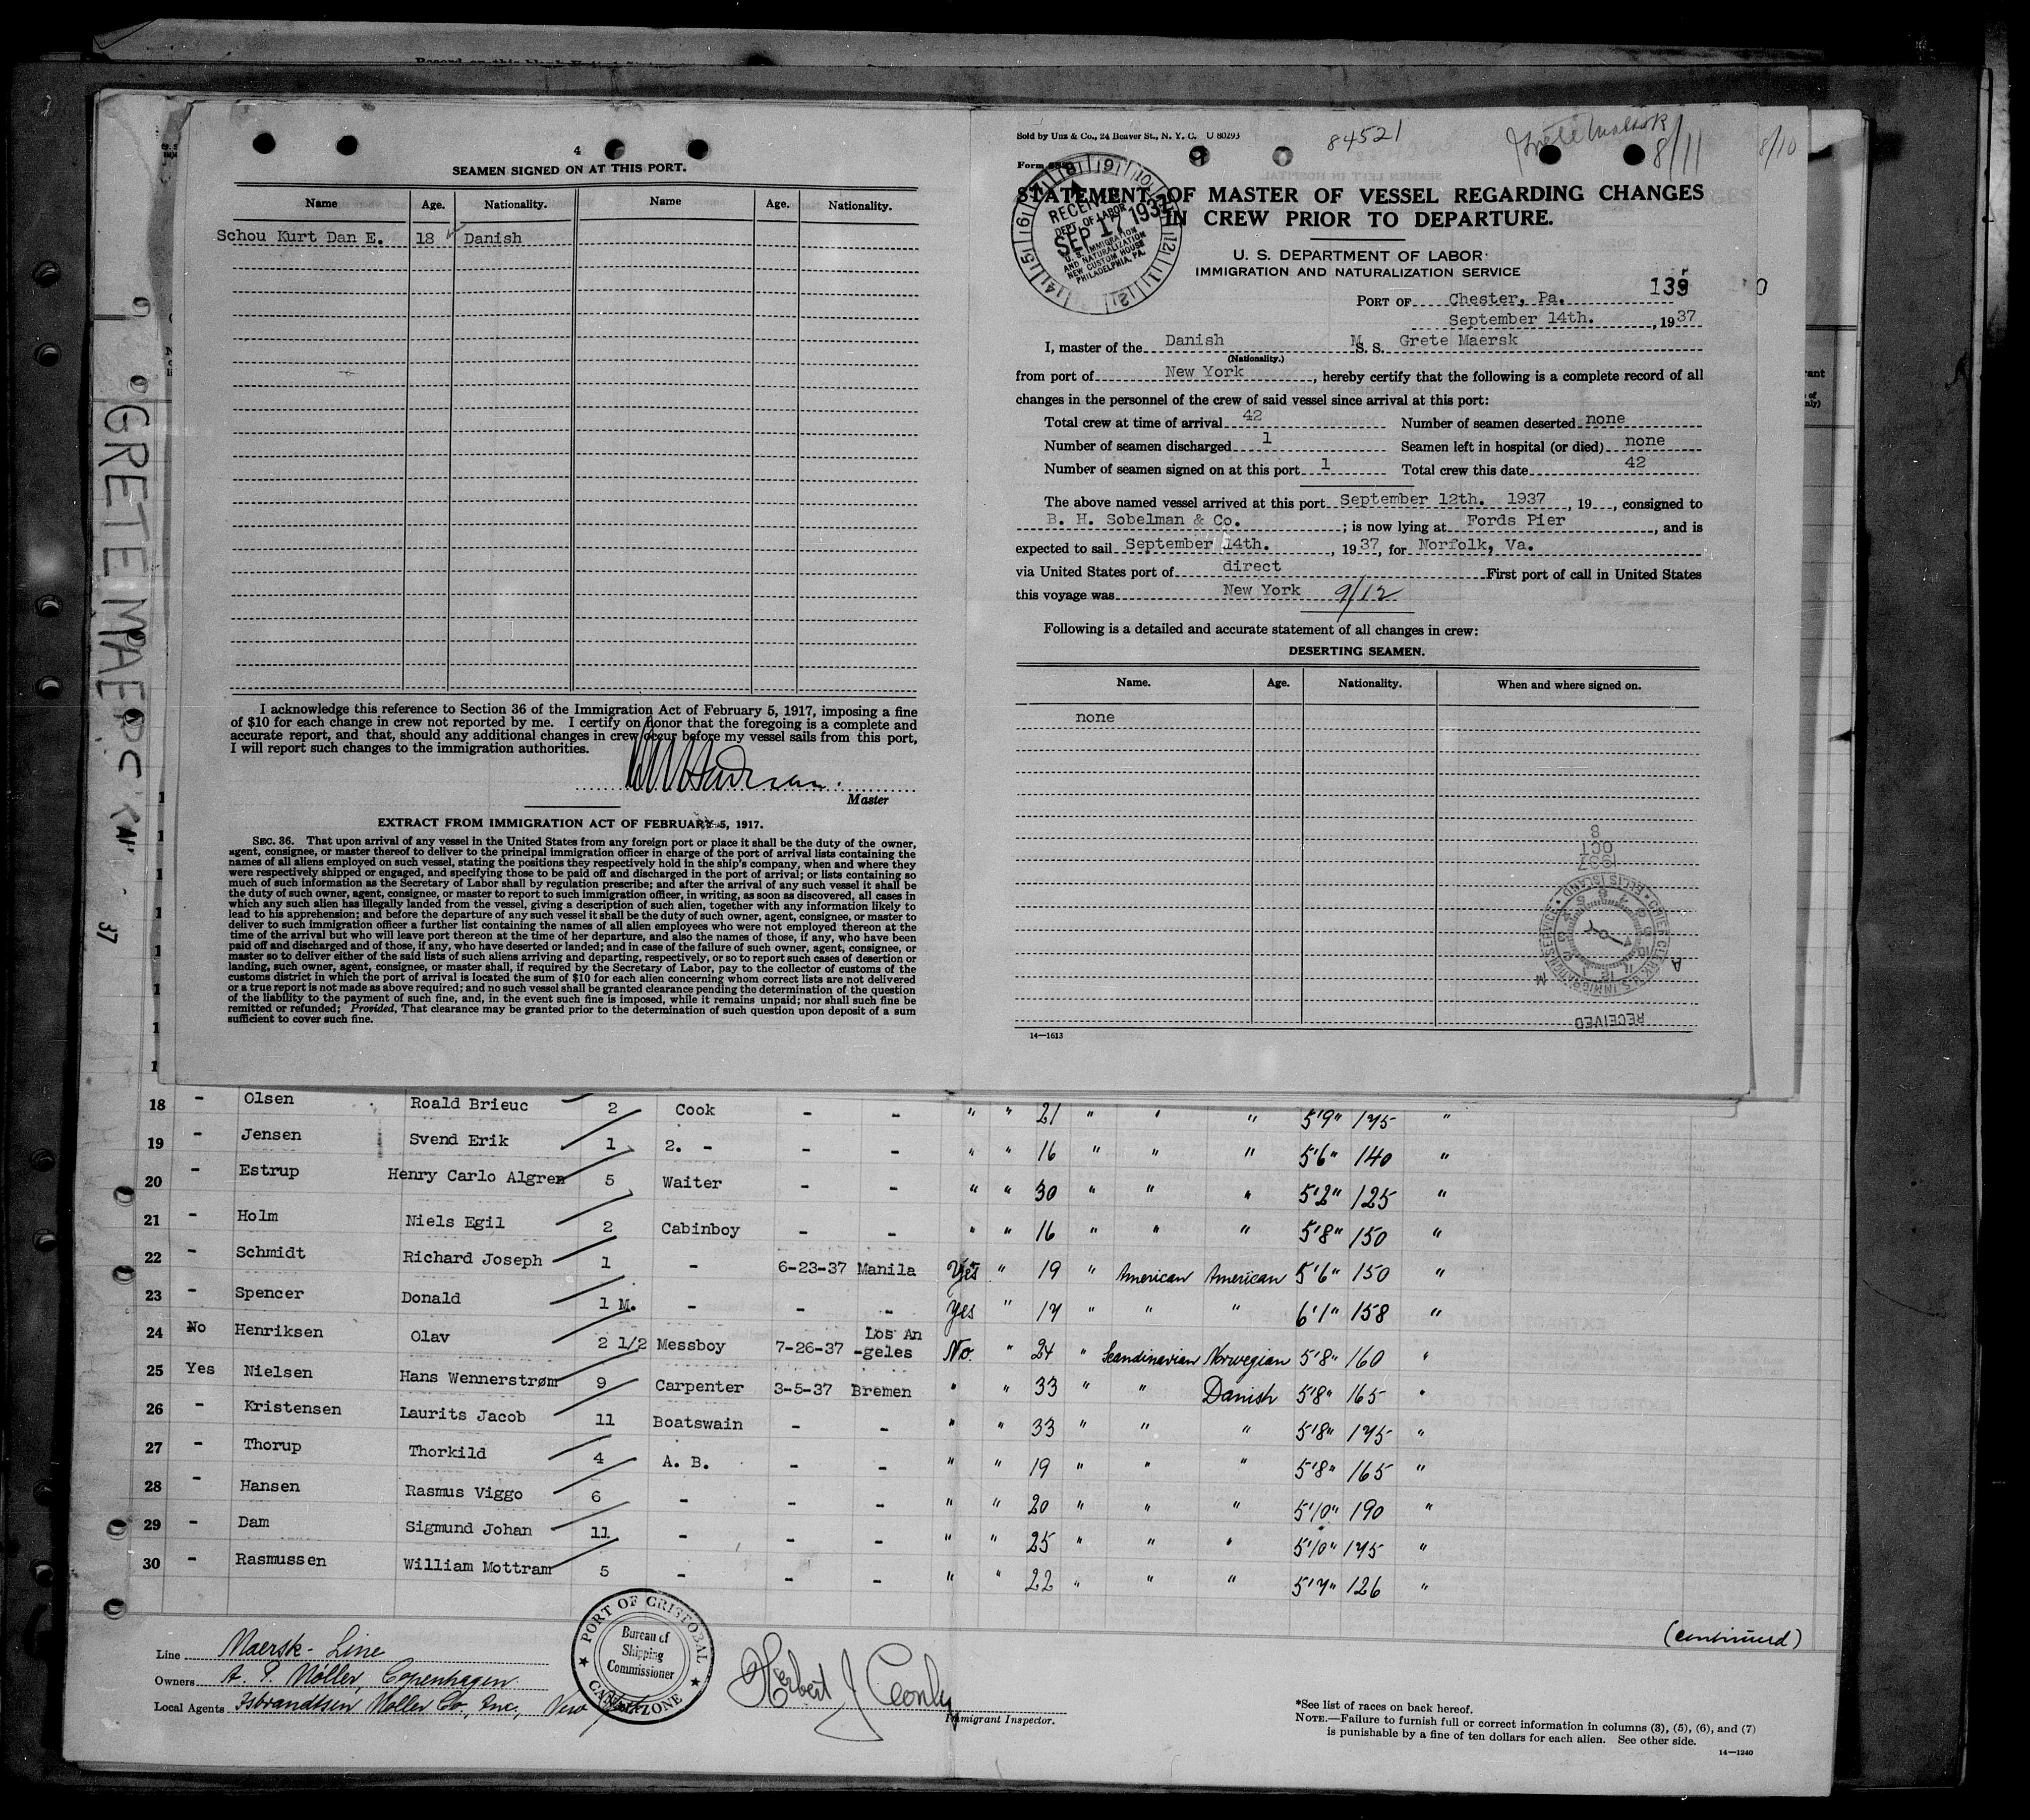 4
SEAMEN SIGNED ON AT THIS PORT.
Name Age. Nationality. Name Age. Nationality.
Schou Kurt Dan E. 18 Danish
I acknowledge this reference to Section 36 of the Immigration Act of February 5, 1917, imposing a fine
of $10 for each change in crew not reported by me. I certify on honor that the foregoing is a complete and
accurate report, and that, should any additional changes in crew occur before my vessel sails from this port,
I will report such changes to the immigration authorities.
Master
EXTRACT FROM IMMIGRATION ACT OF FEBRUARY 5, 1917.
SEC. 36. That upon arrival of any vessel in the United States from any foreign port or place it shall be the duty of the owner,
agent, consignee, or master thereof to deliver to the principal immigration officer in charge of the port of arrival lists containing the
names of all aliens employed on such vessel, stating the positions they respectively hold in the ship's company, when and where they
were respectively shipped or engaged, and specifying those to be paid off and discharged in the port of arrival; or lists containing so
much of such information as the Secretary of Labor shall by regulation prescribe; and after the arrival of any such vessel it shall be
the duty of such owner, agent, consignee, or master to report to such immigration officer, in writing, as soon as discovered, all cases in
which any such alien has illegally landed from the vessel, giving a description of such alien, together with any information likely to
lead to his apprehension; and before the departure of any such vessel it shall be the duty of such owner, agent, consignee, or master to
deliver to such immigration officer a further list containing the names of all alien employees who were not employed thereon at the
time of the arrival but who will leave port thereon at the time of her departure, and also the names of those, if any, who have been
paid off and discharged and of those, if any, who have deserted or landed; and in case of the failure of such owner, agent, consignee, or
master so to deliver either of the said lists of such aliens arriving and departing, respectively, or so to report such cases of desertion or
landing, such owner, agent, consignee, or master shall, if required by the Secretary of Labor, pay to the collector of customs of the
customs district in which the port of arrival is located the sum of $10 for each alien concerning whom correct lists are not delivered
or a true report is not made as above required; and no such vessel shall be granted clearance pending the determination of the question
of the liability to the payment of such fine, and, in the event such fine is imposed, while it remains unpaid; nor shall such fine be
remitted or refunded; Provided, That clearance may be granted prior to the determination of such question upon deposit of a sum
sufficient to cover such fine.
Sold by Unz & Co., 24 Beaver St., N. Y. C. U 80293
84521
8/11
8/10
Form
STATEMENT OF MASTER OF VESSEL REGARDING CHANGES
IN CREW PRIOR TO DEPARTURE.
RECEIVED
DEPT. OF LABOR
SEP 17 1937
U. S. IMMIGRATION
AND NATURALIZATION
NEW CUSTOM HOUSE
PHILADELPHIA, PA.
U. S. DEPARTMENT OF LABOR
IMMIGRATION AND NATURALIZATION SERVICE
139
PORT OF Chester, Pa.
September 14th. , 1937
I, master of the Danish M S. S. Grete Maersk
(Nationality.)
from port of New York , hereby certify that the following is a complete record of all
changes in the personnel of the crew of said vessel since arrival at this port:
Total crew at time of arrival 42 Number of seamen deserted none
Number of seamen discharged 1 Seamen left in hospital (or died) none
Number of seamen signed on at this port 1 Total crew this date 42
The above named vessel arrived at this port September 12th. 1937 , 19 , consigned to
B. H. Sobelman & Co. ; is now lying at Fords Pier , and is
expected to sail September 14th. , 1937, for Norfolk, Va.
via United States port of direct First port of call in United States
this voyage was New York 9/12
Following is a detailed and accurate statement of all changes in crew:
DESERTING SEAMEN.
Name. Age. Nationality. When and where signed on.
none
8
OCT
1937
CHIEF CLERK U.S. IMMIGRATION SERVICE ELLIS ISLAND
A M
RECEIVED
14—1613
GRETE MAERSK
37
18 - Olsen Roald Brieuc 2 Cook - - " " 21 " " " 5'9" 175 "
19 - Jensen Svend Erik 1 2. - - - " " 16 " " " 5'6" 140 "
20 - Estrup Henry Carlo Algren 5 Waiter - - " " 30 " " " 5'2" 125 "
21 - Holm Niels Egil 2 Cabinboy - - " " 16 " " " 5'8" 150 "
22 - Schmidt Richard Joseph 1 - 6-23-37 Manila Yes " 19 " American American 5'6" 150 "
23 - Spencer Donald 1 M. - - - Yes " 17 " " " 6'1" 158 "
24 No Henriksen Olav 2 1/2 Messboy 7-26-37 Los An-geles No. " 24 " Scandinavian Norwegian 5'8" 160 "
25 Yes Nielsen Hans Wennerstrøm 9 Carpenter 3-5-37 Bremen " " 33 " " Danish 5'8" 165 "
26 - Kristensen Laurits Jacob 11 Boatswain - - " " 33 " " " 5'8" 175 "
27 - Thorup Thorkild 4 A. B. - - " " 19 " " " 5'8" 165 "
28 - Hansen Rasmus Viggo 6 - - - " " 20 " " " 5'10" 190 "
29 - Dam Sigmund Johan 11 - - - " " 25 " " " 5'10" 175 "
30 - Rasmussen William Mottram 5 - - - " " 22 " " " 5'7" 126 "
(continued)
Line Maersk-Line
Owners A. P. Möller, Copenhagen.
Local Agents Isbrandtsen Moller Co., Inc., New York
PORT OF CRISTOBAL
Bureau of
Shipping
Commissioner
CANAL ZONE
Immigrant Inspector.
*See list of races on back hereof.
NOTE.—Failure to furnish full or correct information in columns (3), (5), (6), and (7)
is punishable by a fine of ten dollars for each alien. See other side.
14—1240